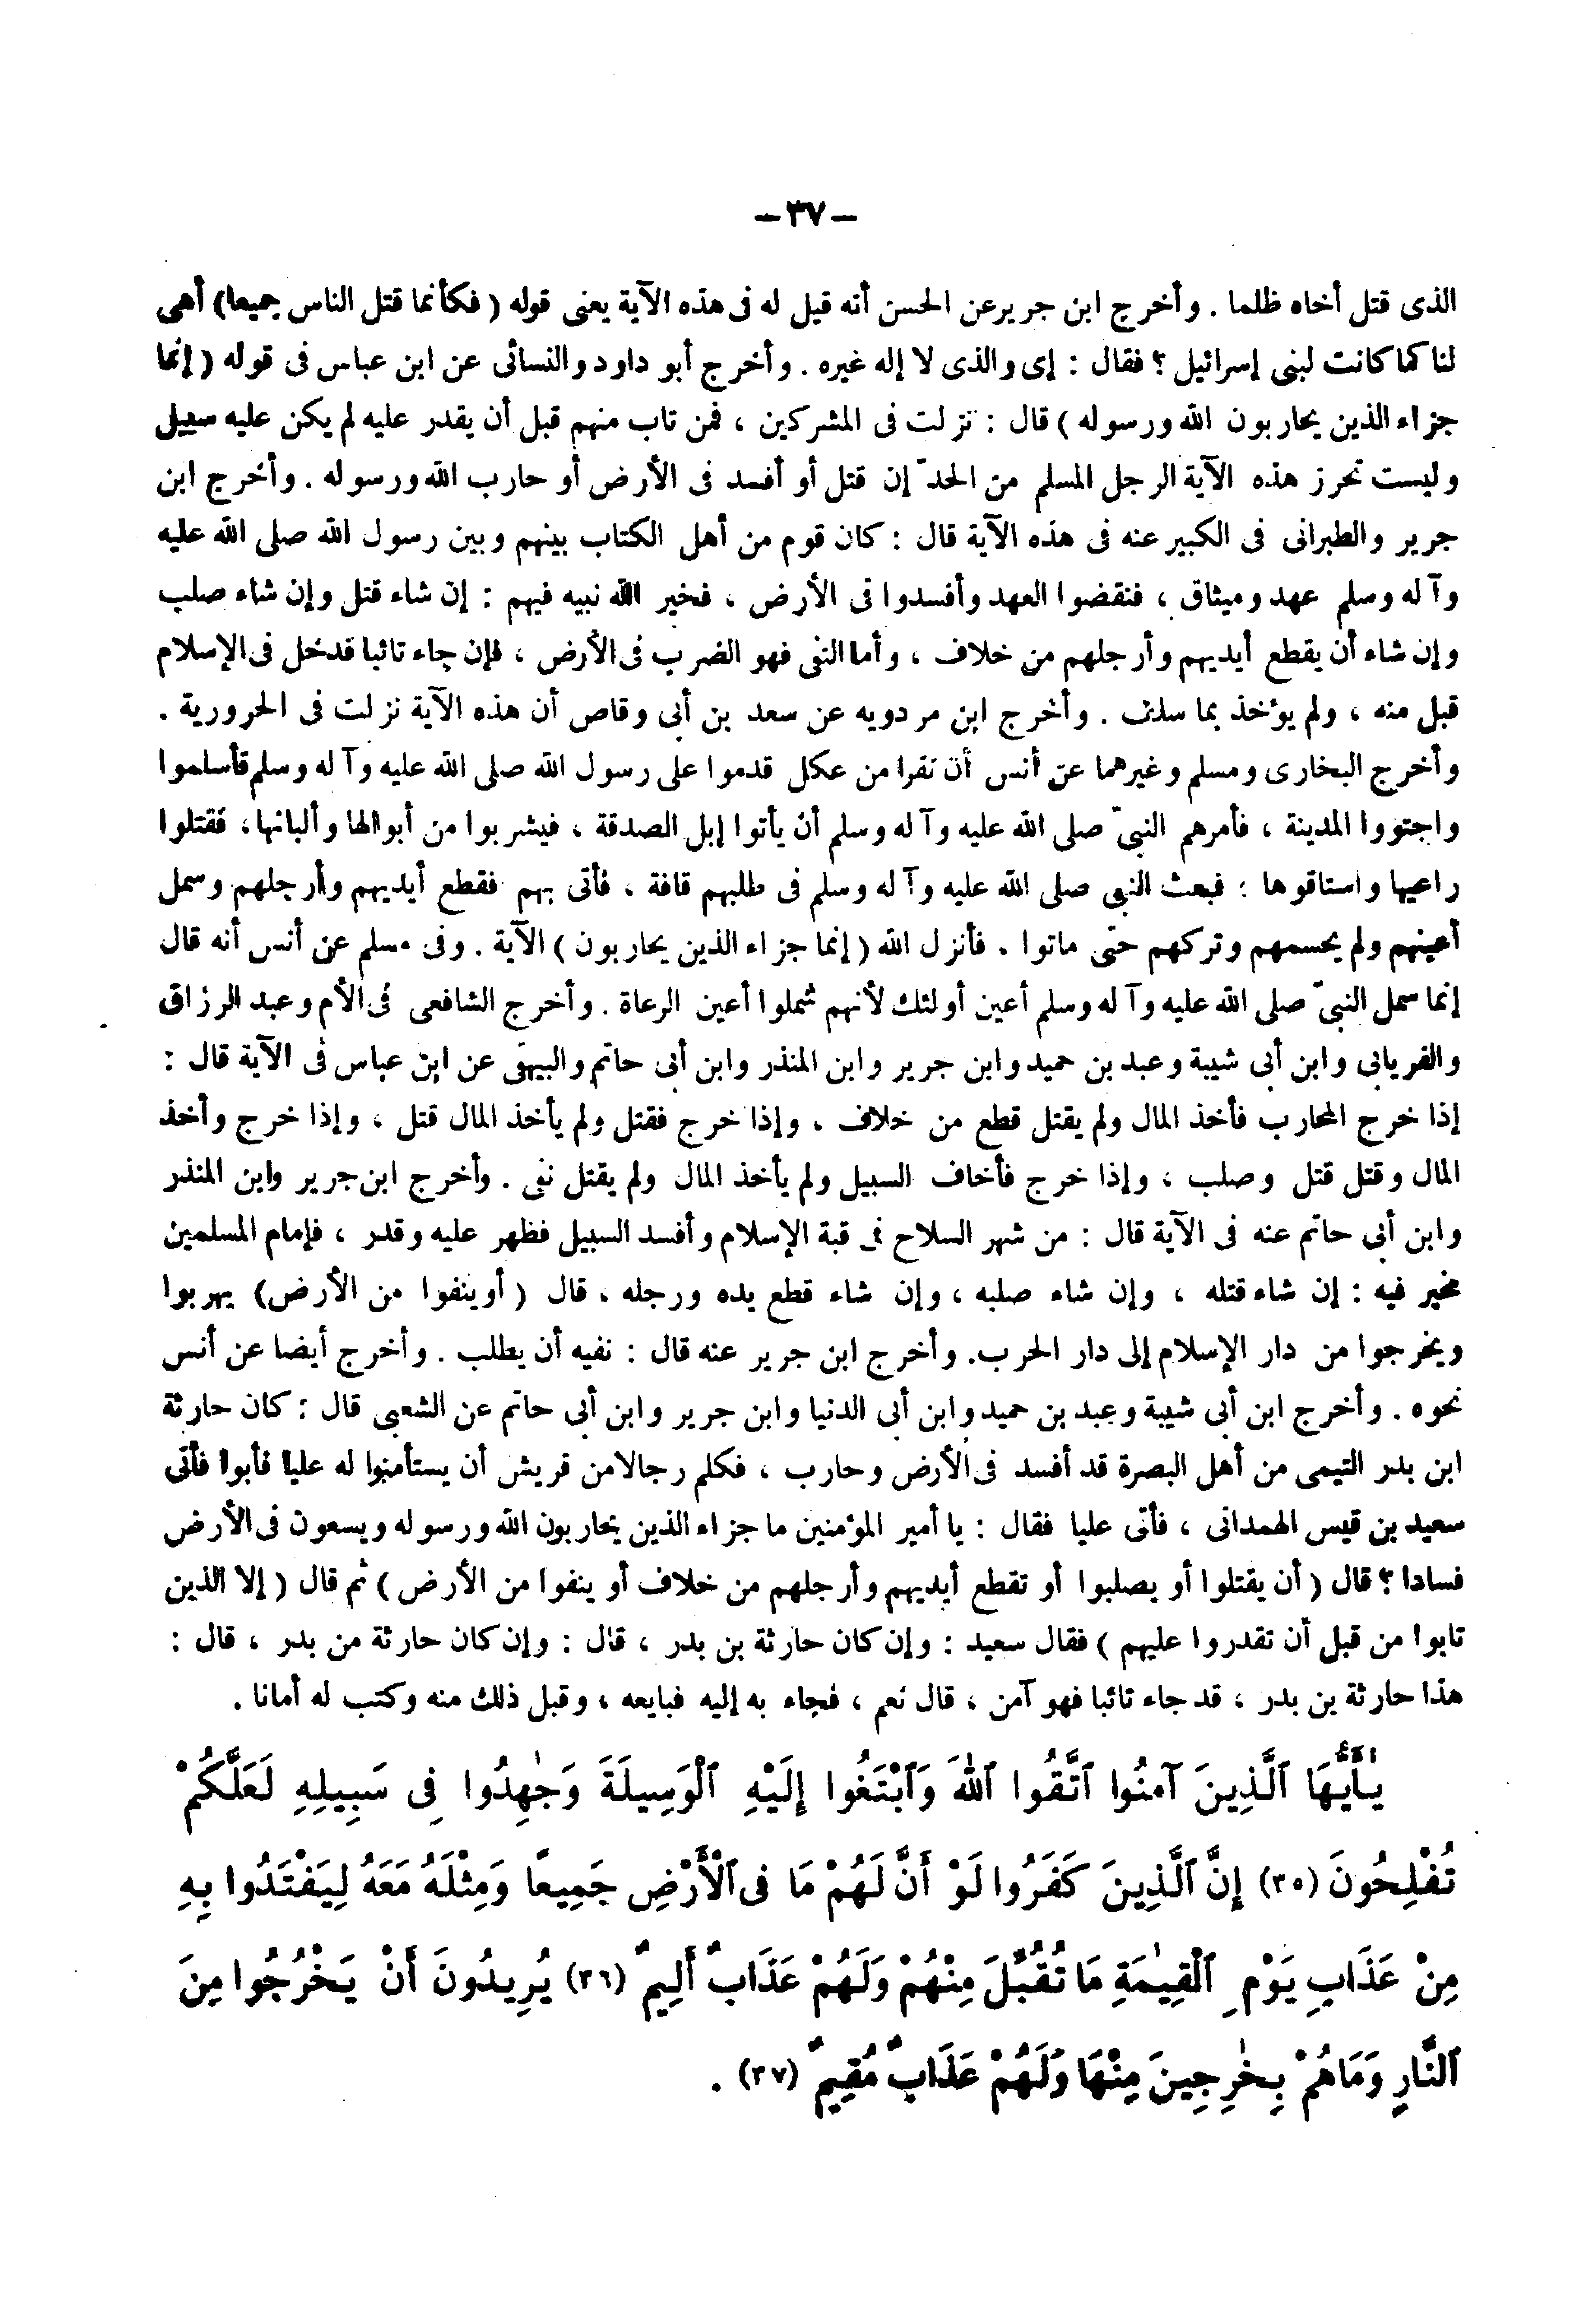 — ٣٧ —
الذى قتل أخاه ظلما . وأخرج ابن جرير عن الحسن أنه قيل له فى هذه الآية يعنى قوله ( فكأنما قتل الناس جميعا) أهى
لنا كما كانت لبنى إسرائيل ؟ فقال : إى والذى لا إله غيره . وأخرج أبو داود والنسائى عن ابن عباس فى قوله ( إنما
جزاء الذين يحاربون الله ورسوله ) قال : نزلت فى المشركين ، فمن تاب منهم قبل أن يقدر عليه لم يكن عليه سبيل
وليست تحرز هذه الآية الرجل المسلم من الحدّ إن قتل أو أفسد فى الأرض أو حارب الله ورسوله . وأخرج ابن
جرير والطبرانى فى الكبير عنه فى هذه الآية قال : كان قوم من أهل الكتاب بينهم وبين رسول الله صلى الله عليه
وآله وسلم عهد وميثاق ، فنقضوا العهد وأفسدوا فى الأرض ، فخير الله نبيه فيهم : إن شاء قتل وإن شاء صلب
وإن شاء أن يقطع أيديهم وأرجلهم من خلاف ، وأما النفى فهو الضرب فى الأرض ، فإن جاء تائبا فدخل فى الإسلام
قبل منه ، ولم يؤخذ بما سلف . وأخرج ابن مردويه عن سعد بن أبى وقاص أن هذه الآية نزلت فى الحرورية .
وأخرج البخارى ومسلم وغيرهما عن أنس أن نفرا من عكل قدموا على رسول الله صلى الله عليه وآله وسلم فأسلموا
واجتووا المدينة ، فأمرهم النبىّ صلى الله عليه وآله وسلم أن يأتوا إبل الصدقة ، فيشربوا من أبوالها وألبانها، فقتلوا
راعيها واستاقوها ؛ فبعث النبى صلى الله عليه وآله وسلم فى طلبهم قافة ، فأتى بهم فقطع أيديهم وأرجلهم وسمل
أعينهم ولم يحسمهم وتركهم حتى ماتوا . فأنزل الله ( إنما جزاء الذين يحاربون ) الآية . وفى مسلم عن أنس أنه قال
إنما سمل النبىّ صلى الله عليه وآله وسلم أعين أولئك لأنهم سملوا أعين الرعاة . وأخرج الشافعى فى الأم وعبد الرزاق
والفريابى وابن أبى شيبة وعبد بن حميد وابن جرير وابن المنذر وابن أبى حاتم والبيهقى عن ابن عباس فى الآية قال :
إذا خرج المحارب فأخذ المال ولم يقتل قطع من خلاف ، وإذا خرج فقتل ولم يأخذ المال قتل ، وإذا خرج وأخذ
المال وقتل قتل وصلب ، وإذا خرج فأخاف السبيل ولم يأخذ المال ولم يقتل نفى . وأخرج ابن جرير وابن المنذر
وابن أبى حاتم عنه فى الآية قال : من شهر السلاح فى قبة الإسلام وأفسد السبيل فظهر عليه وقدر ، فإمام المسلمين
مخير فيه : إن شاء قتله ، وإن شاء صلبه ، وإن شاء قطع يده ورجله ، قال ( أو ينفوا من الأرض) يهربوا
ويخرجوا من دار الإسلام إلى دار الحرب. وأخرج ابن جرير عنه قال : نفيه أن يطلب . وأخرج أيضا عن أنس
نحوه . وأخرج ابن أبى شيبة وعبد بن حميد وابن أبى الدنيا وابن جرير وابن أبى حاتم عن الشعبى قال : كان حارثة
ابن بدر التيمى من أهل البصرة قد أفسد فى الأرض وحارب ، فكلم رجالا من قريش أن يستأمنوا له عليا فأبوا فأتى
سعيد بن قيس الهمدانى ، فأتى عليا فقال : يا أمير المؤمنين ما جزاء الذين يحاربون الله ورسوله ويسعون فى الأرض
فسادا ؟ قال ( أن يقتلوا أو يصلبوا أو تقطع أيديهم وأرجلهم من خلاف أو ينفوا من الأرض ) ثم قال ( إلا الذين
تابوا من قبل أن تقدروا عليهم ) فقال سعيد : وإن كان حارثة بن بدر ، قال : وإن كان حارثة من بدر ، قال :
هذا حارثة بن بدر ، قد جاء تائبا فهو آمن ، قال نعم ، فجاء به إليه فبايعه ، وقبل ذلك منه وكتب له أمانا .
يٰٓأَيُّهَا ٱلَّذِينَ آمنُوا ٱتَّقُوا ٱللهَ وَٱبْتَغُوا إِلَيْهِ ٱلْوَسِيلَةَ وَجٰهِدُوا فِى سَبِيلِهِ لَعَلَّكُمْ
تُفْلِحُونَ (٣٥) إِنَّ ٱلَّذِينَ كَفَرُوا لَوْ أَنَّ لَهُمْ مَا فى ٱلْأَرْضِ جَمِيعًا وَمِثْلَهُ مَعَهُ لِيَفْتَدُوا بِهِ
مِنْ عَذَابِ يَوْمِ ٱلْقِيٰمَةِ مَا تُقُبِّلَ مِنْهُمْ وَلَهُمْ عَذَابٌ أَلِيمٌ (٣٦) يُرِيدُونَ أَنْ يَخْرُجُوا مِنَ
ٱلنَّارِ وَمَاهُمْ بِخٰرِجِينَ مِنْهَا وَلَهُمْ عَذَابٌ مُقِيمٌ (٣٧) .